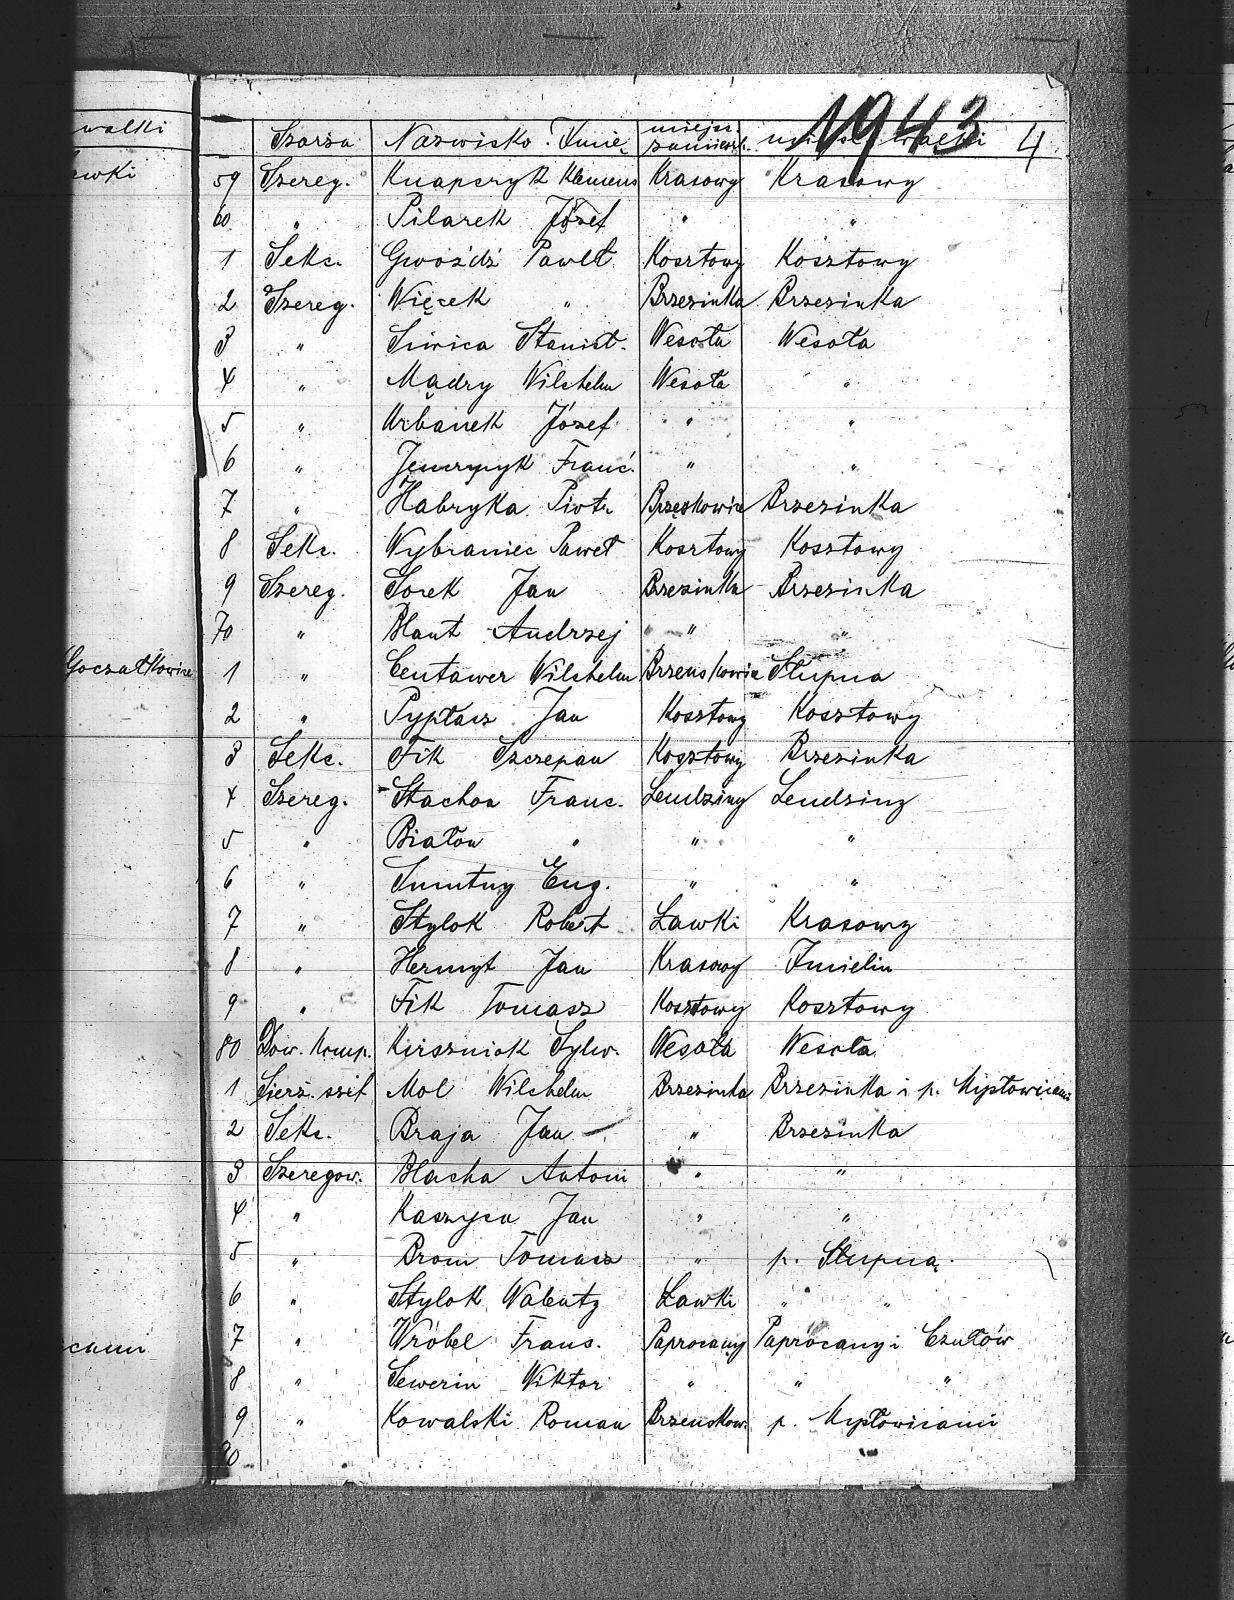 walki
ewki
Goczałkowice
icami
1943
4
Szarża Nazwisko. Imię miejsc. zamieszk. walki
59 Szereg. Knapczyk Klemens Krasowy Krasowy
60 " Pilarek Józef " "
1 Sekc. Gwoźdź Paweł Kosztowy Kosztowy
2 Szereg. Więcek " Brzezinka Brzezinka
3 " Siwica Stanisł. Wesoła Wesoła
4 " Mądry Wilchelm Wesoła "
5 " Urbanek Józef " "
6 " Franc. " "
7 " Habryka Piotr Brzęskowice Brzezinka
8 Sekc. Wybraniec Paweł Kosztowy Kosztowy
9 Szereg. Sorek Jan Brzezinka Brzezinka
70 " Blaut Andrzej " "
1 " Centawer Wilchelm Brzenskowice Słupna
2 " Pyplacz Jan Kosztowy Kosztowy
3 Sekc. Fik Szczepan Kosztowy Brzezinka
4 Szereg. Stachoń Franc. Lendziny Lendziny
5 " Białoń " " "
6 " Smutny Eug. " "
7 " Stylok Robert Ławki Krasowy
8 " Hermyt Jan Krasowy Imielin
9 " Fik Tomasz Kosztowy Kosztowy
80 Dow. Komp. Kirszniok Sylw. Wesoła Wesoła
1 Sierż. szef Mol Wilchelm Brzezinka Brzezinka i p. Mysłowicami
2 Sekc. Braja Jan " Brzezinka
3 Szeregow. Blacha Antoni " "
4 " Kaszyca Jan " "
5 " Brom Tomasz " p. Słupną.
6 " Stylok Walenty Ławki " "
7 " Wróbel Franc. Paprocany Paprocany i Czułów
8 " Sewerin Wiktor " " "
9 " Kowalski Roman Brzenskow. p. Mysłowicami
90